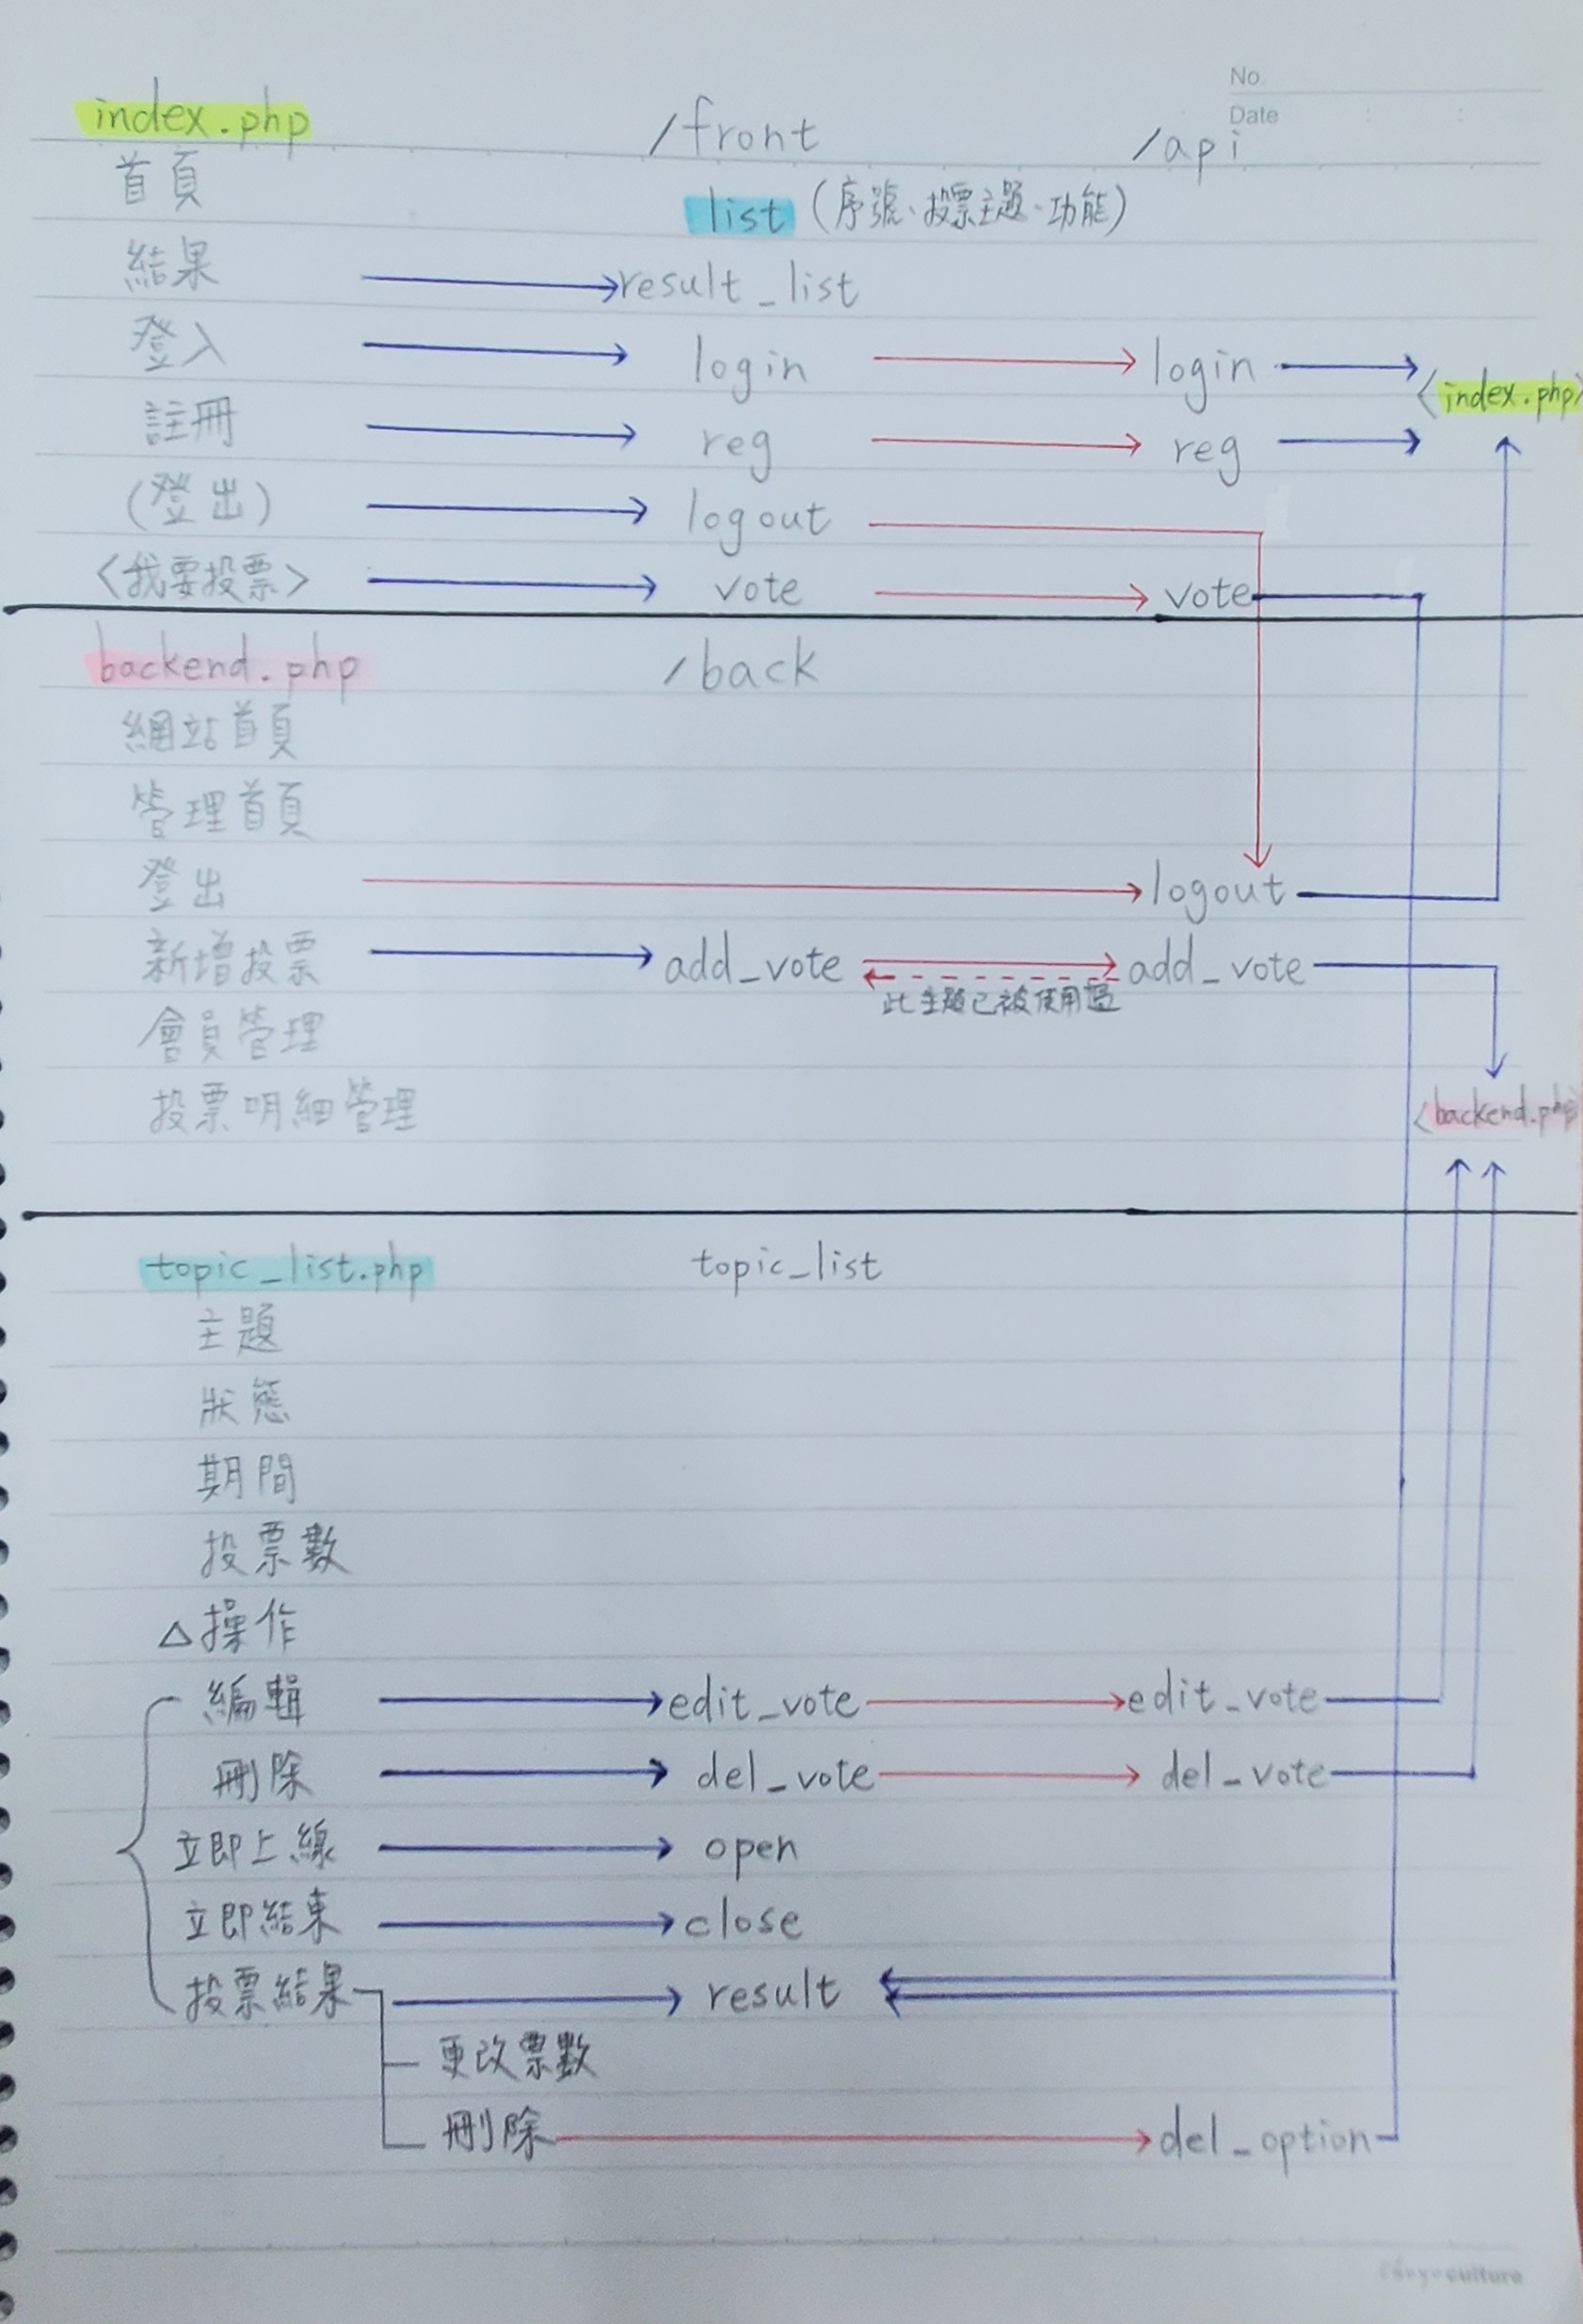 No.
Date : :
index.php /front /api
首頁 list (序號、投票主題、功能)
結果 result_list
登入 login login
<index.php>
註冊 reg reg
(登出) logout
<我要投票> vote vote
backend.php /back
網站首頁
管理首頁
登出 logout
新增投票 add_vote add_vote
此主題已被使用過
會員管理
投票明細管理 <backend.php>
topic_list.php topic_list
主題
狀態
期間
投票數
△操作
編輯 edit_vote edit_vote
刪除 del_vote del_vote
立即上線 open
立即結束 close
投票結果 result
更改票數
刪除 del_option
culture